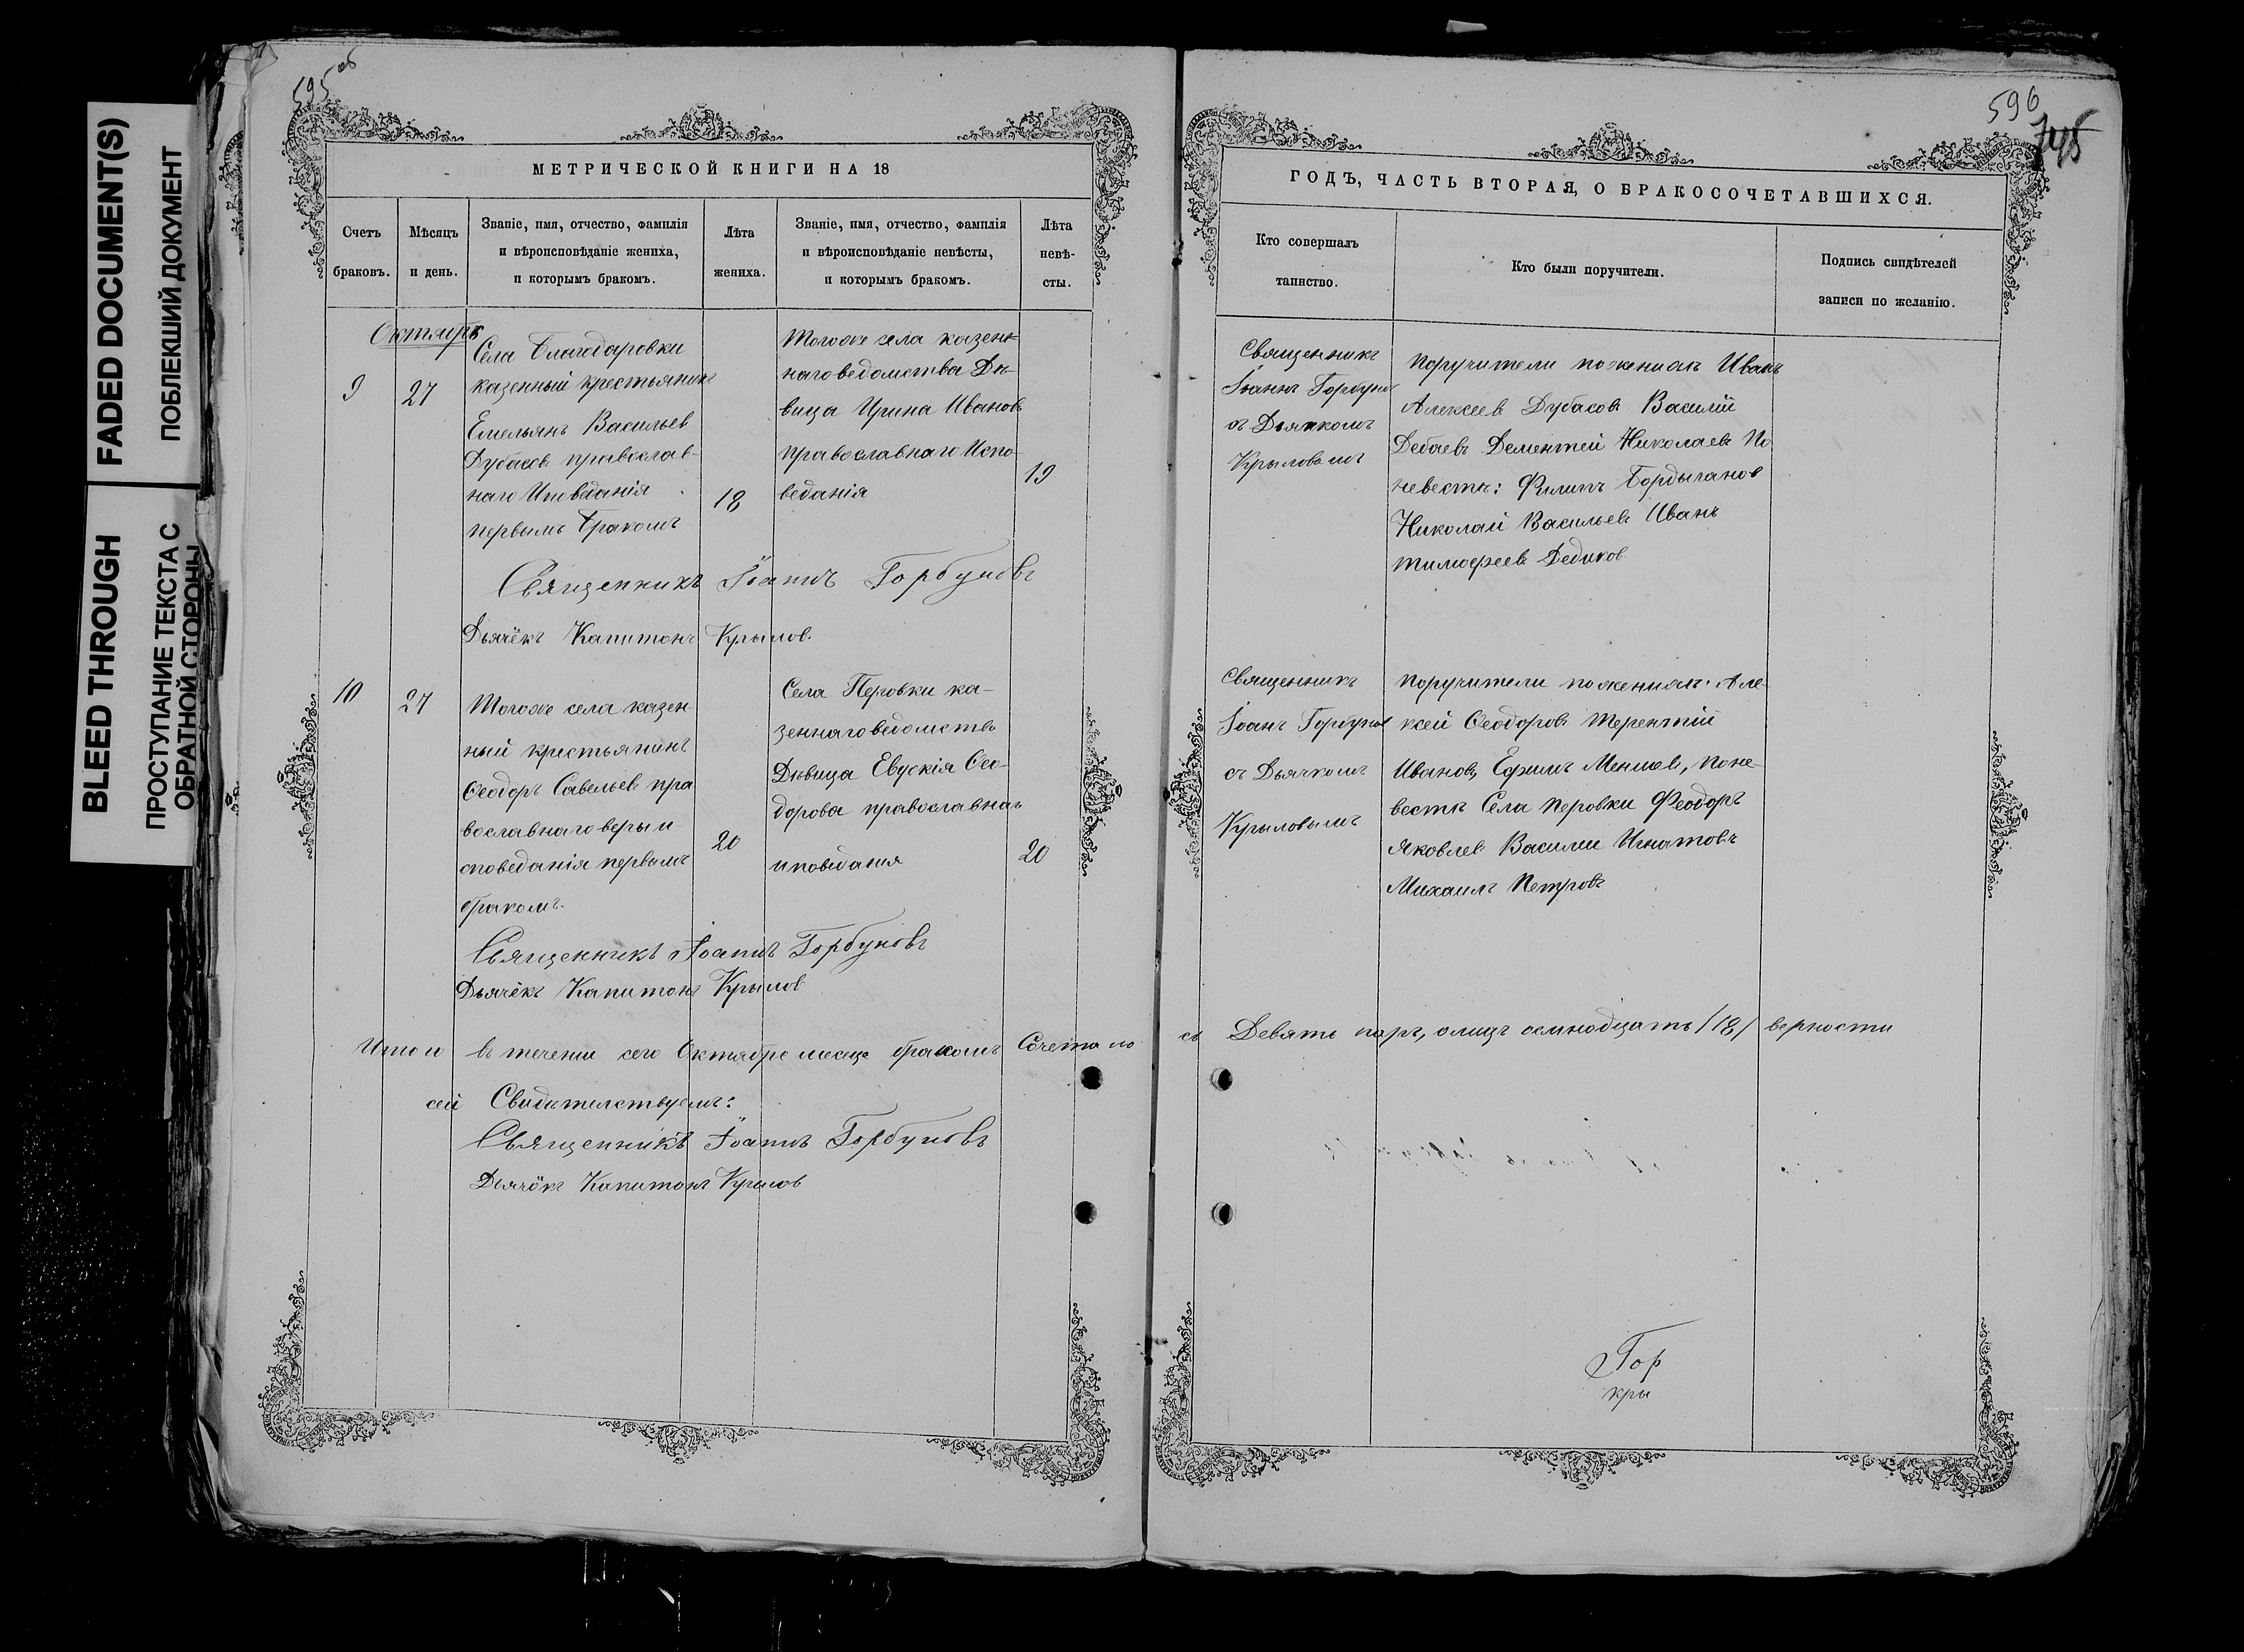 FADED DOCUMENT(S)
ПОБЛЕКШИЙ ДОКУМЕНТ
BLEED THROUGH
ПРОСТУПАНИЕ ТЕКСТА С
ОБРАТНОЙ СТОРОНЫ
595 об
МЕТРИЧЕСКОЙ КНИГИ НА 18
Счетъ браковъ.
Мѣсяцъ и день.
Званіе, имя, отчество, фамилія
и вѣроисповѣданіе жениха,
и которымъ бракомъ.
Лѣта жениха.
Званіе, имя, отчество, фамилія
и вѣроисповѣданіе невѣсты,
и которымъ бракомъ.
Лѣта невѣ-
сты.
Октябрь
9
27
Села Благодаровки
казенный крестьянинъ
Емельянъ Васильев
Дубасовъ православ-
наго Иповѣданія
первымъ Бракомъ
18
Тогоже села казен-
наго ведомства Дѣ-
вица Ирина Иванова
православнаго Испо-
веданія
19
Священникъ Іоаннъ Горбуновъ
Дьячёкъ Капитонъ Крылов.
10
27
Тогоже села казен
ный крестьянинъ
Ѳеодоръ Савельевъ пра
вославнаго веры и
споведанія первымъ
бракомъ.
20
Села Перовки ка-
зеннаго ведомства
Дѣвица Евдокія Ѳео-
дорова православнаго
иповѣдания
20
Священникъ Іоаннъ Горбуновъ
Дьячёкъ Капитонъ Крылов
Итого въ течении сего Октября месяца бракомъ Сочетало
сей Свидѣтелствуемъ:
Священникъ Іоаннъ Горбуновъ
Дьячёкъ Капитонъ Крылов
596
745
ГОДЪ, ЧАСТЬ ВТОРАЯ, О БРАКОСОЧЕТАВШИХСЯ.
Кто совершалъ
таинство.
Кто были поручители.
Подпись свидѣтелей
записи по желанію.
Священникъ
Іоаннъ Горбунов
съ Дьячкомъ
Крыловымъ
Поручители по женихѣ Иванъ
Алексеев Дубасовъ Василій
Дебаевъ Дементей Николаевъ По
невесты: Филипъ Бордыганов
Николай Васильевъ Иванъ
Тимофеевъ Дедиков
Священникъ
Іоанъ Горбунов
съ Дьячкомъ
Крыловымъ
Поручители по женихѣ: Але
ксей Ѳеодоровъ Терентій
Ивановъ, Ефимъ Меншов, По не-
вестѣ Села Перовки Феодоръ
Яковлев Василии Игнатовъ
Михаилъ Петровъ
сь Девять паръ, а лицъ осмнадцать /18/ верности
Гор
кры